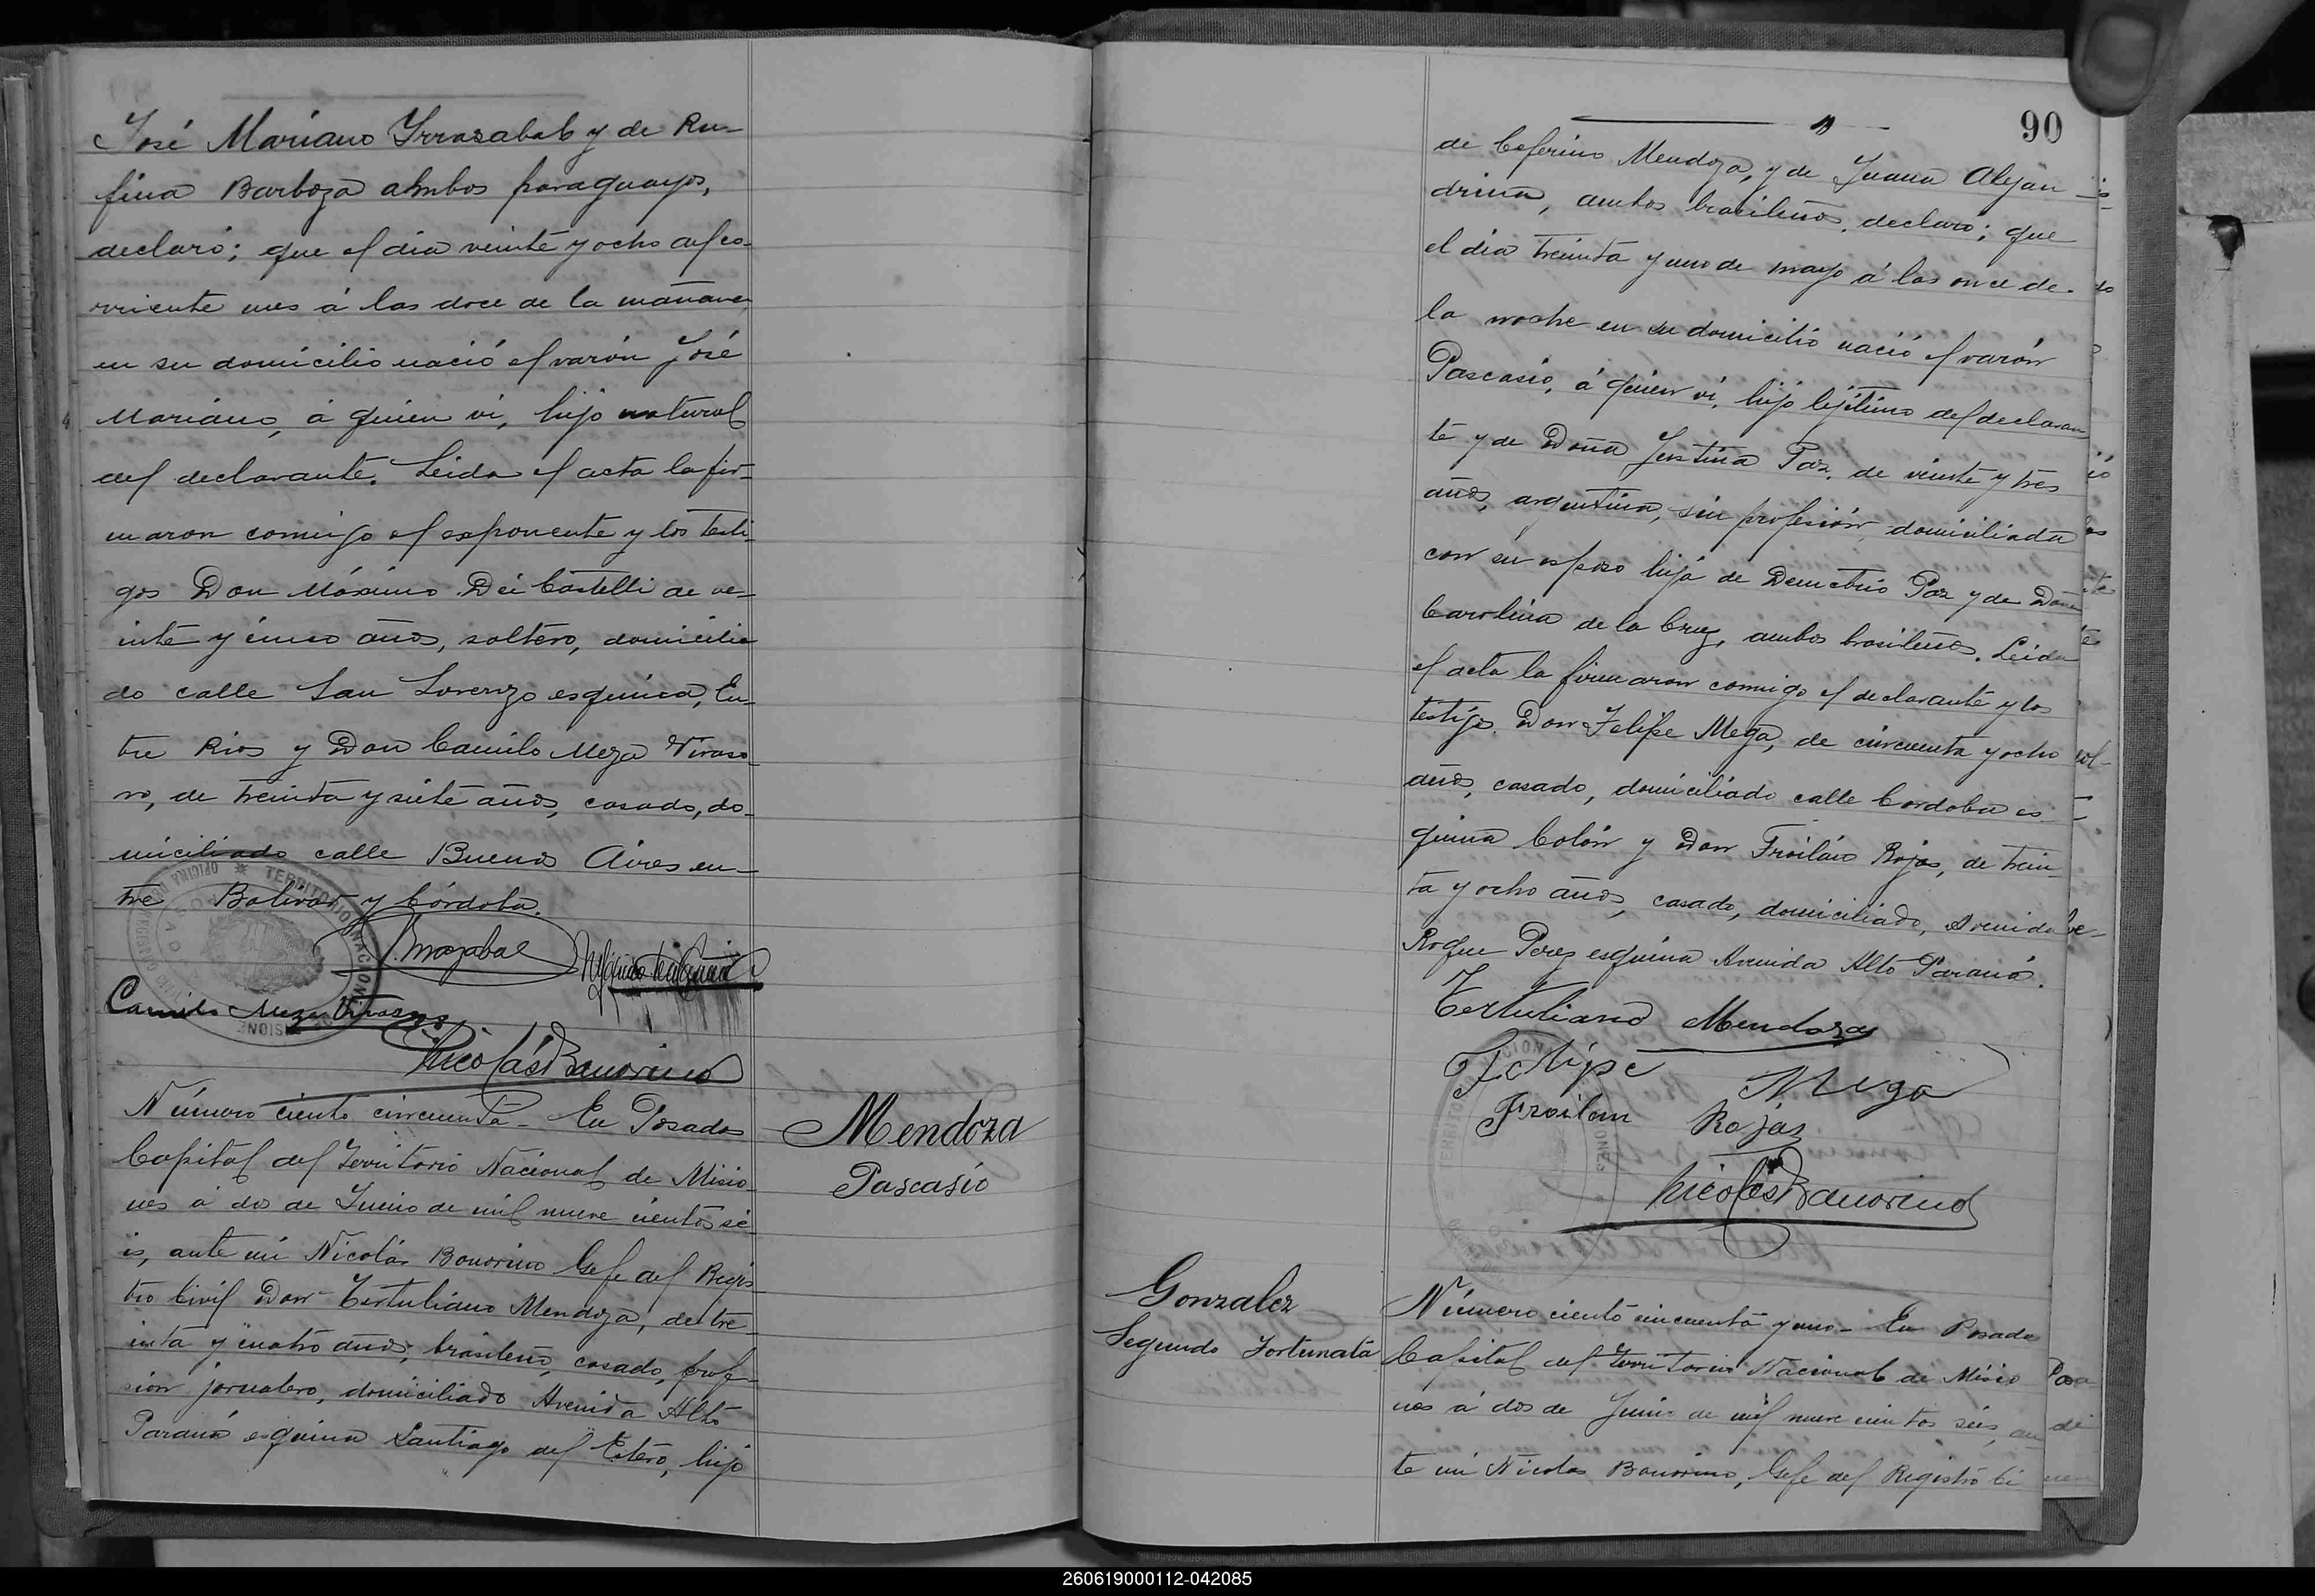 José Mariano Yrrazabal y de Ru-
fina Barboza ambos paraguayos,
declaró; que el dia veinte y ocho del co-
rriente mes á las doce de la mañana
en su domicilio nació el varón José
Mariano, á quien vi, hijo natural
del declarante. Leida el acta la fir-
maron comigo el exponente y los testi-
gos Don Máximo Dei Castelli de ve-
inte y cinco años, soltero, domicilia
do calle San Lorenzo esquina, En-
tre Rios y Don Camilo Meza Viraso-
ro, de treinta y siete años, casado, do-
miciliado calle Buenos Aires en-
tre Bolivar y Córdoba.
Camilo Meza Virasoro
Nicolás Bonorino
Número ciento cincuenta - En Posadas
Capital del Territorio Nacional de Misio-
nes á dos de Junio de mil nueve cientos se
is, ante mi Nicolás Bonorino Gefe del Regis
tro Civil Don Tertuliano Mendoza, de tre-
inta y cuatro años, brasileño, casado, profe-
sion jornalero, domiciliado Avenida Alto
Paraná esquina Santiago del Estero, hijo
Mendoza
Pascasio
90
de Ceferino Mendoza, y de Juana Alejan-
drina, ambos brasileños, declaró; que
el dia treinta y uno de mayo á las once de
la noche en su domicilio nació el varón
Pascasio, á quien vi, hijo lejítimo del declaran
te y de Doña Justina Paz, de veinte y tres
años, argentina, sin profesión, domiciliada
con su esposo hija de Demetrio Paz y de Doña
Carolina de la Cruz, ambos brasileños. Leida
el acta la firmaron comigo el declarante y los
testigos Don Felipe Mega, de cincuenta y ocho
años, casado, domiciliado calle Cordoba es
quina Colón y Don Froilán Rojas, de trein-
ta y ocho años, casado, domiciliado, Avenida
Roque Perez esquina Avenida Alto Paraná.
Tertuliano Mendoza
Felipe Mega
Froilan Rojas
Nicolás Bonorino
Gonzalez
Segundo Fortunato
Número ciento cincuenta y uno - En Posadas
Capital del Territorio Nacional de Misio
nes á dos de Junio de mil nueve cientos seis, an
te mi Nicolas Bonorino, Gefe del Registro Ci
260619000112-042085